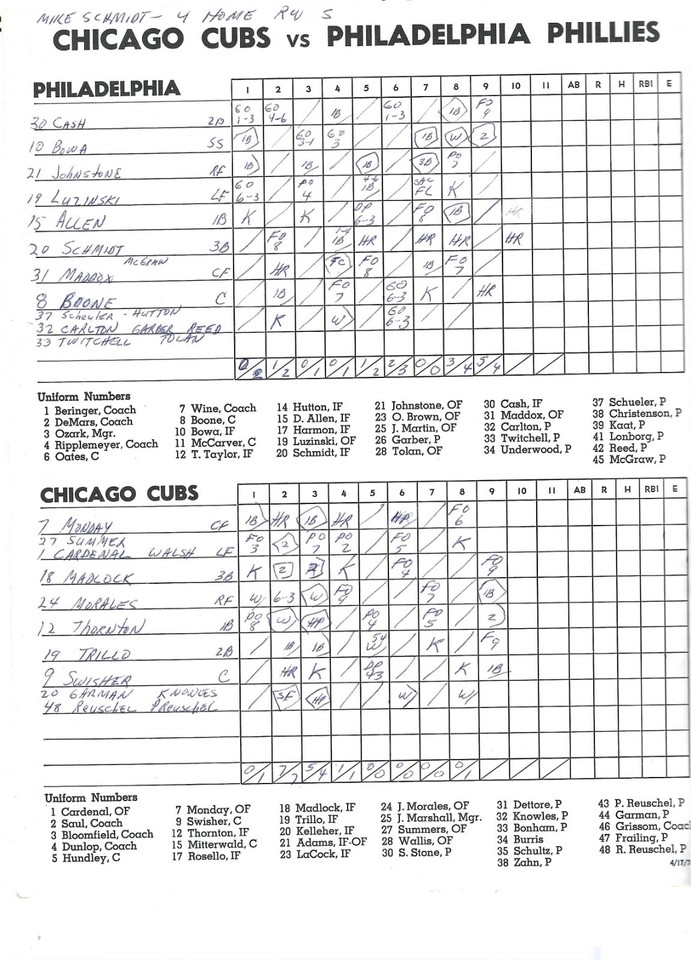 MIKE SCHMIDT - 4 HOME RUNS
CHICAGO CUBS vs PHILADELPHIA PHILLIES
PHILADELPHIA 1 2 3 4 5 6 7 8 9 10 11 AB R H RBI E
30 CASH 2B GO 1-3 GO 4-6 1B GO 1-3 1B FO 9
10 BOWA SS 1B GO 3-1 GO 3 1B W 2
21 JOHNSTONE RF 1B 1B 1B 3B PO 7
19 LUZINSKI LF GO 6-3 PO 4 1B SAC FL K
15 ALLEN 1B K K DP 6-3 FO 8 1B HR
20 SCHMIDT 3B FO 8 1B HR HR HR HR
McGRAW
31 MADDOX CF HR FC FO 8 1B FO 7
8 BOONE C 1B FO 7 GO 6-3 K HR
37 SCHEULER - HUTTON
32 CARLTON GARBER REED K W GO 6-3
33 TWITCHELL TOLAN
1/2 0/1 0/1 1/2 2/3 0/0 3/4 5/4
Uniform Numbers
1 Beringer, Coach
2 DeMars, Coach
3 Ozark, Mgr.
4 Ripplemeyer, Coach
6 Oates, C
7 Wine, Coach
8 Boone, C
10 Bowa, IF
11 McCarver, C
12 T. Taylor, IF
14 Hutton, IF
15 D. Allen, IF
17 Harmon, IF
19 Luzinski, OF
20 Schmidt, IF
21 Johnstone, OF
23 O. Brown, OF
25 J. Martin, OF
26 Garber, P
28 Tolan, OF
30 Cash, IF
31 Maddox, OF
32 Carlton, P
33 Twitchell, P
34 Underwood, P
37 Schueler, P
38 Christenson, P
39 Kaat, P
41 Lonborg, P
42 Reed, P
45 McGraw, P
CHICAGO CUBS 1 2 3 4 5 6 7 8 9 10 11 AB R H RBI E
7 MONDAY CF 1B HR 1B HR HR FO 6
27 SUMMER
1 CARDENAL WALSH LF FO 3 2 PO 7 PO 2 FO 5 K
18 MADLOCK 3B K 2 K FO 4 FO 9
24 MORALES RF W 6-3 W FO 9 FO 7 1B
12 THORNTON 1B PO 8 W HP PO 4 FO 5 2
19 TRILLO 2B 1B 1B W K F9
9 SWISHER C HR K DP 43 K 1B
20 GARMAN KNOWLES
48 REUSCHEL PREUSCHEL SF HP W W
0/1 7/7 5/4 1/1 0/0 0/0 0/0 0/1
Uniform Numbers
1 Cardenal, OF
2 Saul, Coach
3 Bloomfield, Coach
4 Dunlop, Coach
5 Hundley, C
7 Monday, OF
9 Swisher, C
12 Thornton, IF
15 Mitterwald, C
17 Rosello, IF
18 Madlock, IF
19 Trillo, IF
20 Kelleher, IF
21 Adams, IF-OF
23 LaCock, IF
24 J. Morales, OF
25 J. Marshall, Mgr.
27 Summers, OF
28 Wallis, OF
30 S. Stone, P
31 Dettore, P
32 Knowles, P
33 Bonham, P
34 Burris
35 Schultz, P
38 Zahn, P
43 P. Reuschel, P
44 Garman, P
46 Grissom, Coac
47 Frailing, P
48 R. Reuschel, P
4/17/7